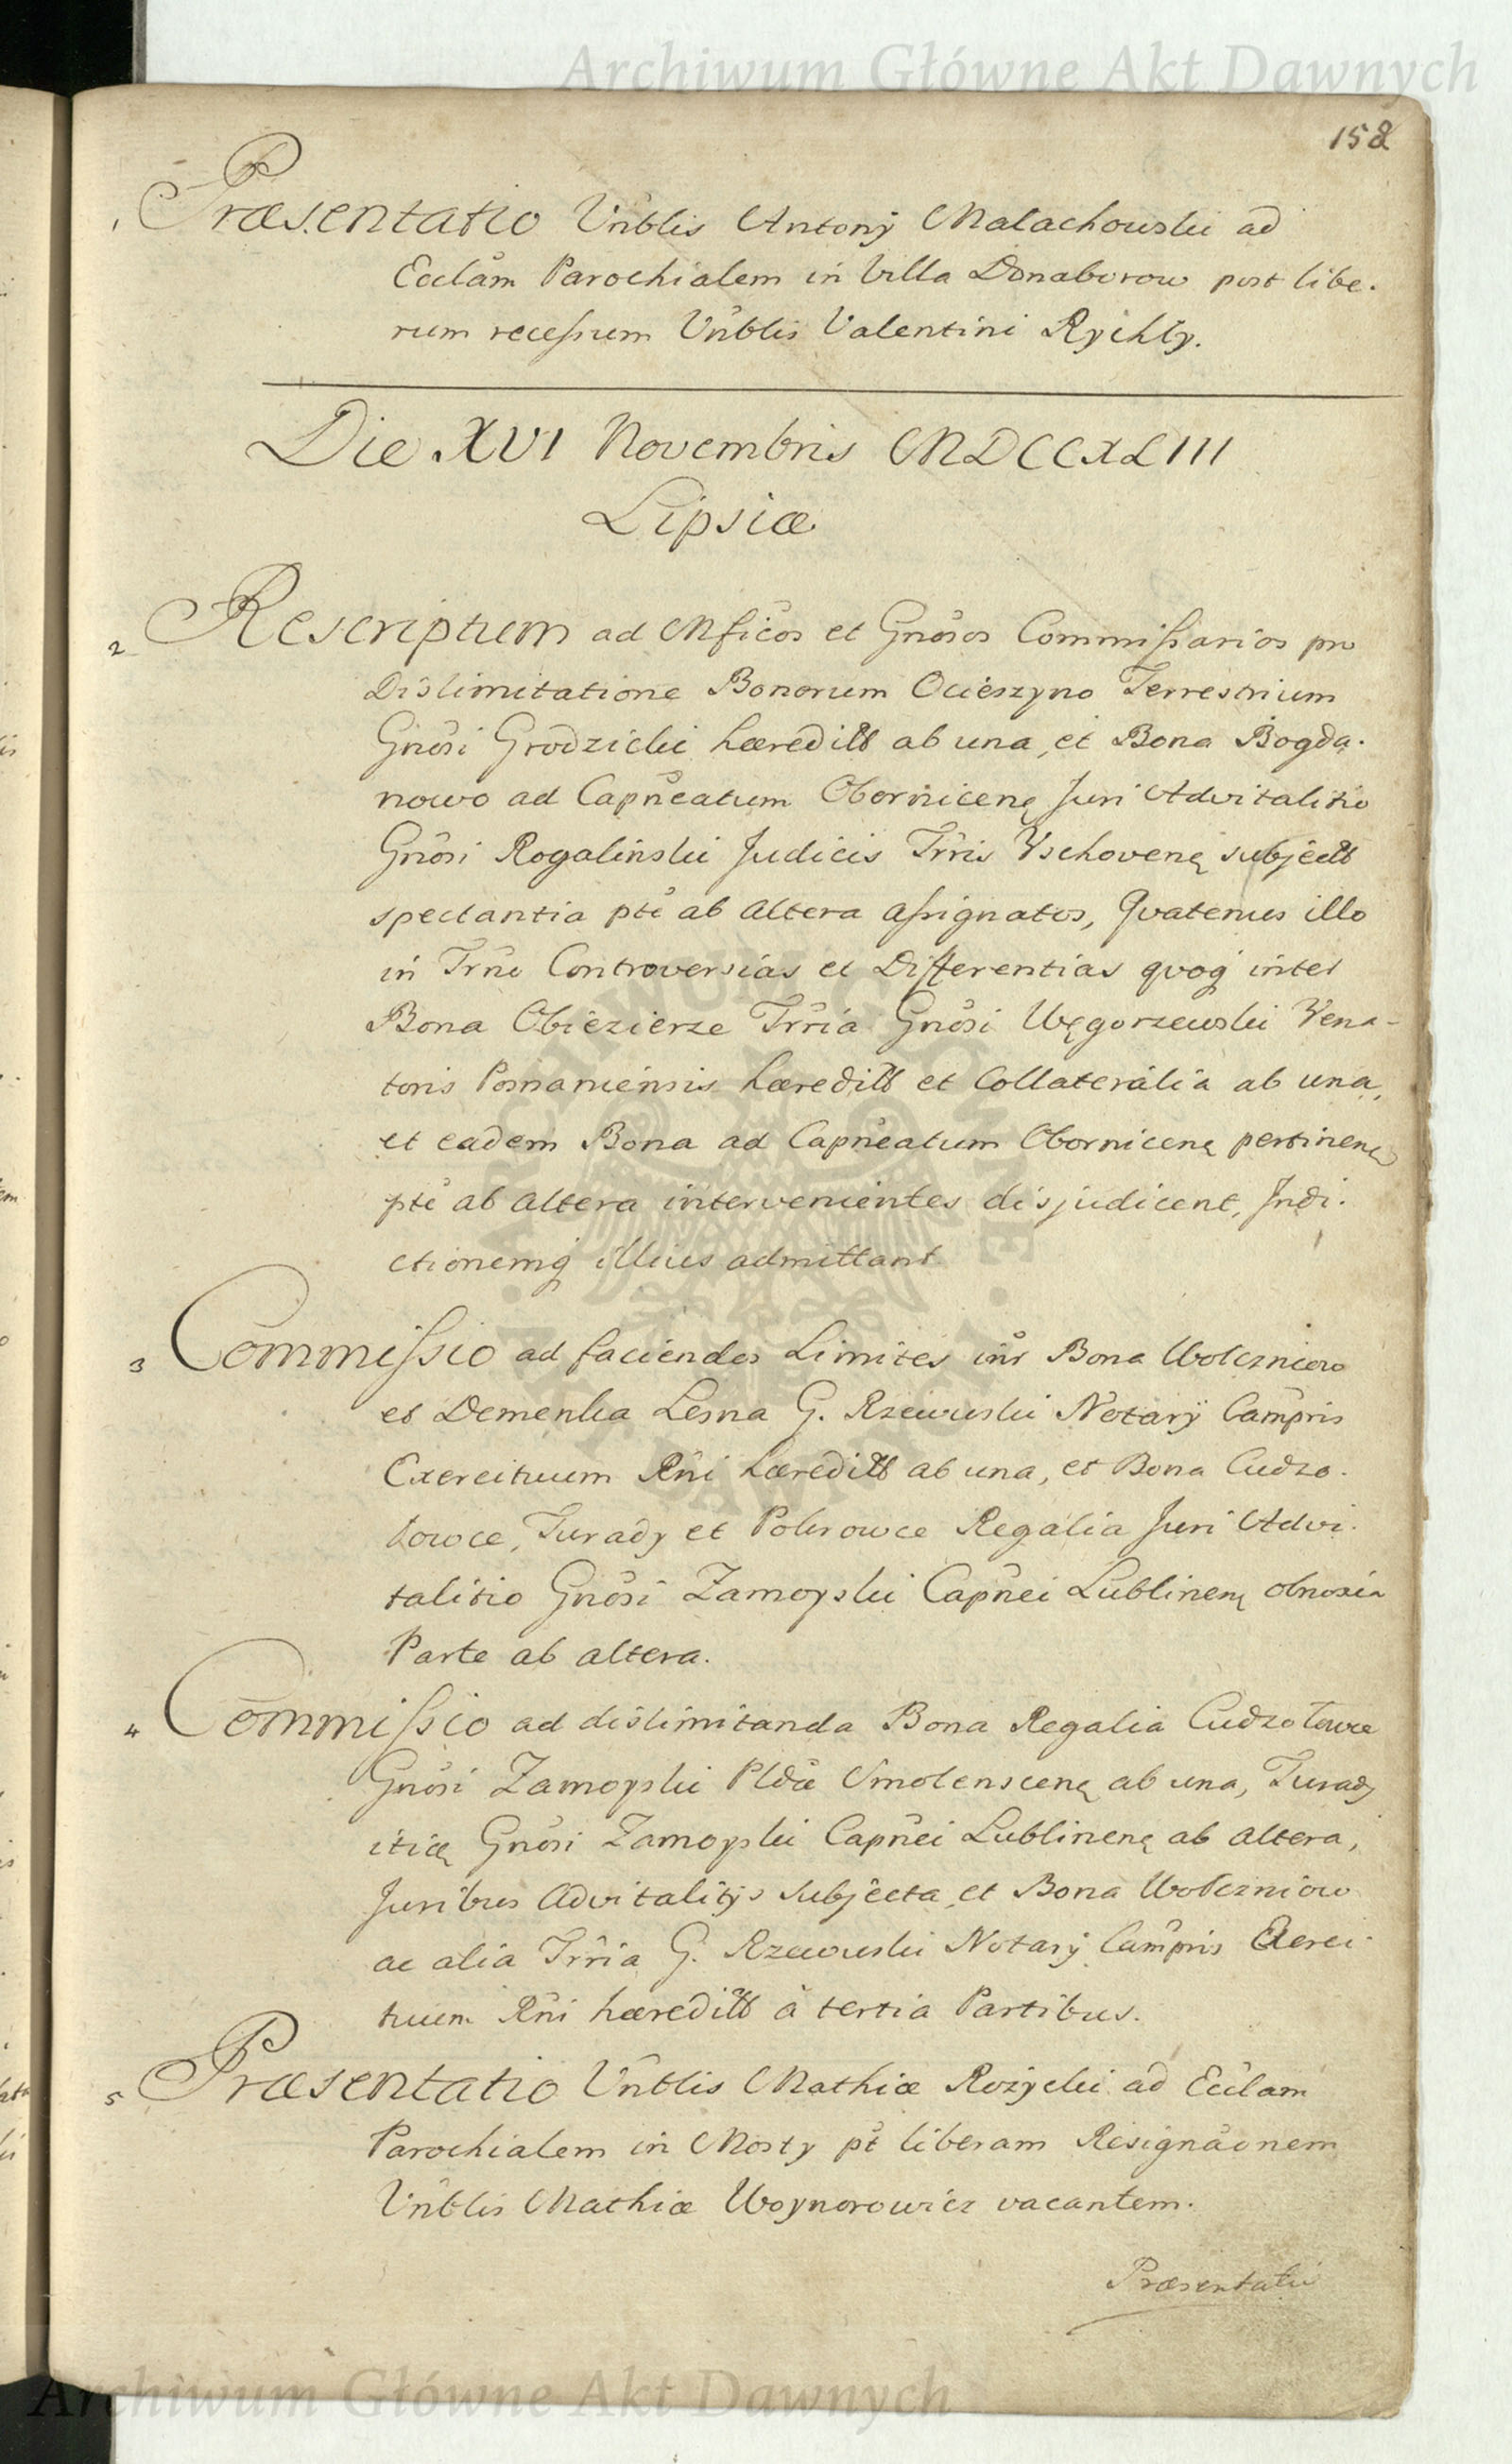 Archiwum Główne Akt Dawnych
158
1 Præsentatio Vnblis Antonÿ Malachowski ad
Ecclam Parochialem in Villa Donaborow post libe.
rum recessum Vnblis Valentini Rychły.
Die XVI Novembris MDCCXLIII
Lipsiæ
2 Rescriptum ad Mficos et Gnosos Commissarios pro
Dislimitatione Bonorum Ocieszyno Terrestrium
Gnosi Grodzicki hæredit ab una, et Bona Bogda.
nowo ad Capneatum Obornicenę Juri Advitalitio
Gnosi Rogalinski Judicis Trris Vschovenę subject
spectantia pte ab altera assignatos, Quatenus illo
in Trno Controversias et Differentias quoq inter
Bona Obiezierze Trria Gnosi Węgorzewski Vena-
toris Posnaniensis hæredit et Collateralia ab una,
et eadem Bona ad Capneatum Obornicenę pertinenę
pte ab altera intervenientes disjudicent, Indi.
ctionemq illius admittant
3 Commissio ad faciendos Limites intr Bona Wołczniow
et Dementka Lesna G. Rzewuski Notarÿ Campris
Exercituum Rni hæredit ab una, et Bona Cudzo.
łowce, Turady et Pokrowce Regalia Juri Advi.
talitio Gnosi Zamoyski Capnei Lublinenę obnoxia
Parte ab altera.
4 Commissio ad dislimitanda Bona Regalia Cudzołowce
Gnosi Zamoyski Pldæ Smolenscenę ab una, Turady
itię Gnosi Zamoyski Capnei Lublinenę ab altera,
Juribus Advitalitÿs subjecta, et Bona Wołczniow
ac alia Trria G. Rzewuski Notarÿ Campris Exerci.
tuum Rni hæredit à tertia Partibus.
5 Præsentatio Vnblis Mathiæ Rozycki ad Ecclam
Parochialem in Mosty pt liberam Resignaonem
Vnblis Mathiæ Woynorowicz vacantem.
Præsentatio
Archiwum Główne Akt Dawnych